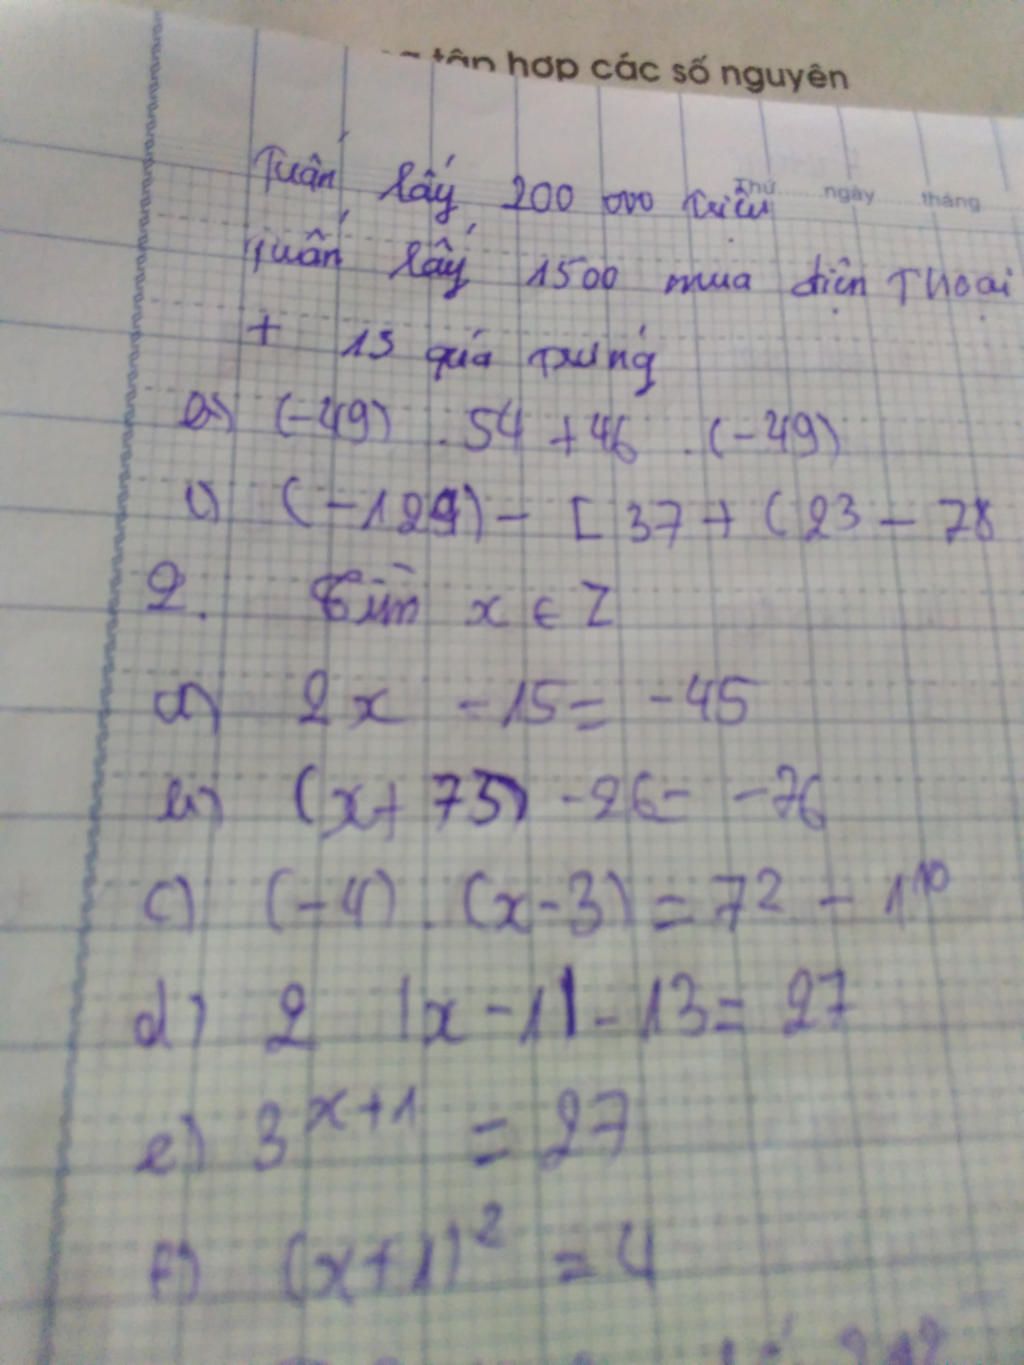 tập hợp các số nguyên
Thứ ngày tháng
Tuấn lấy 200 000 triệu
Tuấn lấy 1500 mua điện Thoại
+ 15 quả trứng
(-49) . 54 + 46 . (-49)
(-129) - [ 37 + ( 23 - 78
2. Tìm x ∈ Z
a) 2x - 15 = -45
b) (x + 75) - 26 = -76
c) (-4) . (x - 3) = 7² - 1¹⁰
d) 2 |x - 1| - 13 = 27
e) 3ˣ⁺¹ = 27
f) (x + 1)² = 4